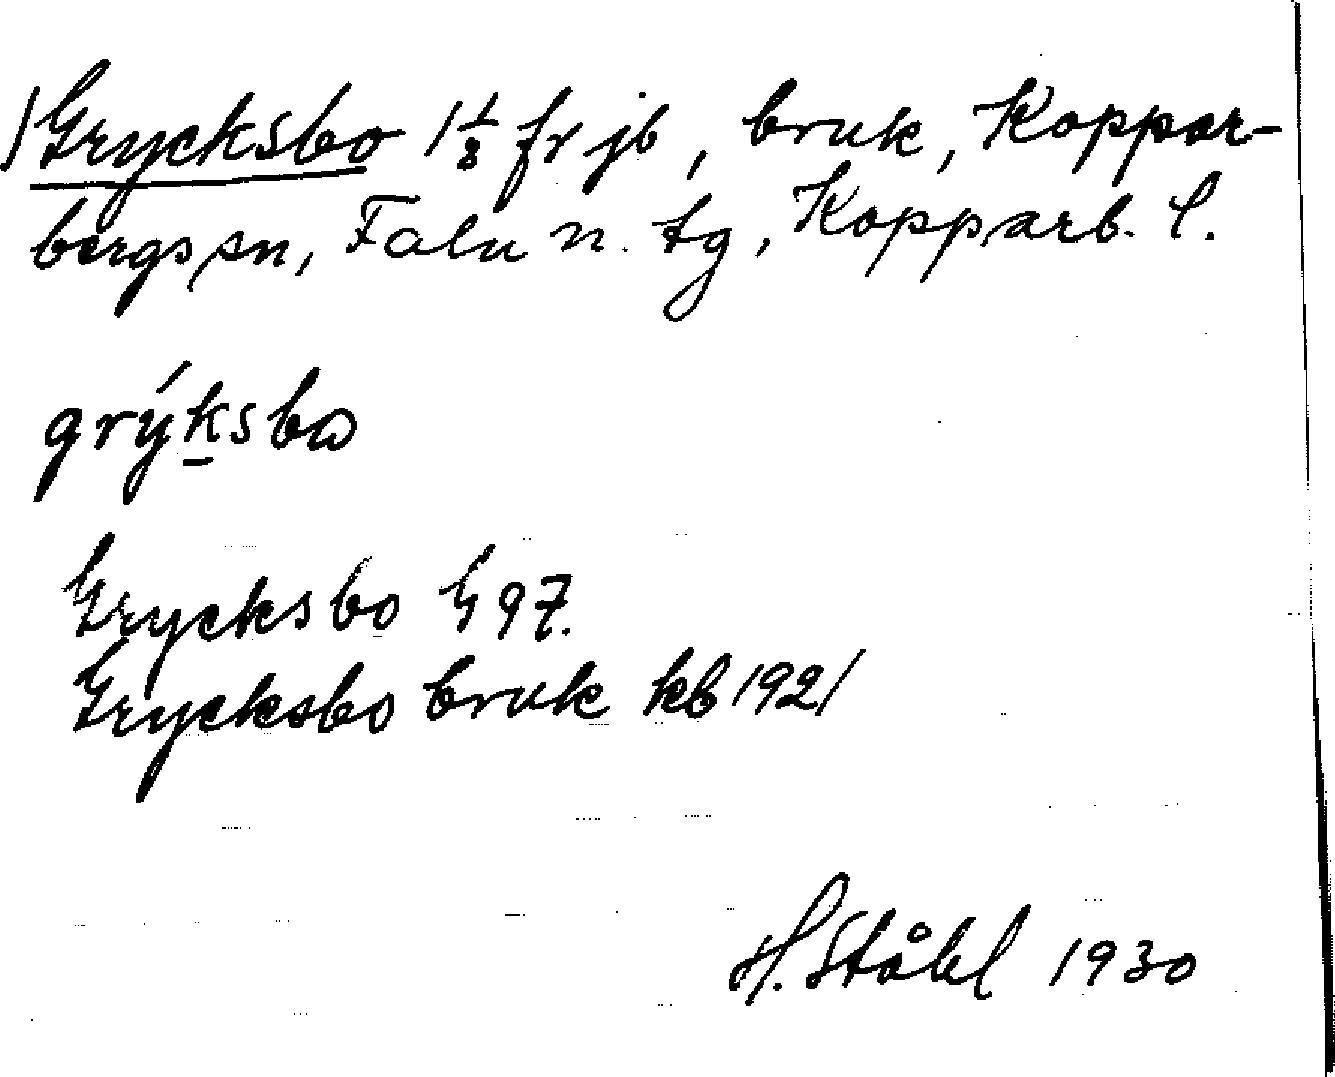 Grycksbo 1 1/8 fr jb, bruk, Koppar-
bergs sn, Falu n. tg, Kopparb. l.
grýksbω
Grycksbo G 97.
Grycksbo bruk kb 1921
H. Ståhl 1930